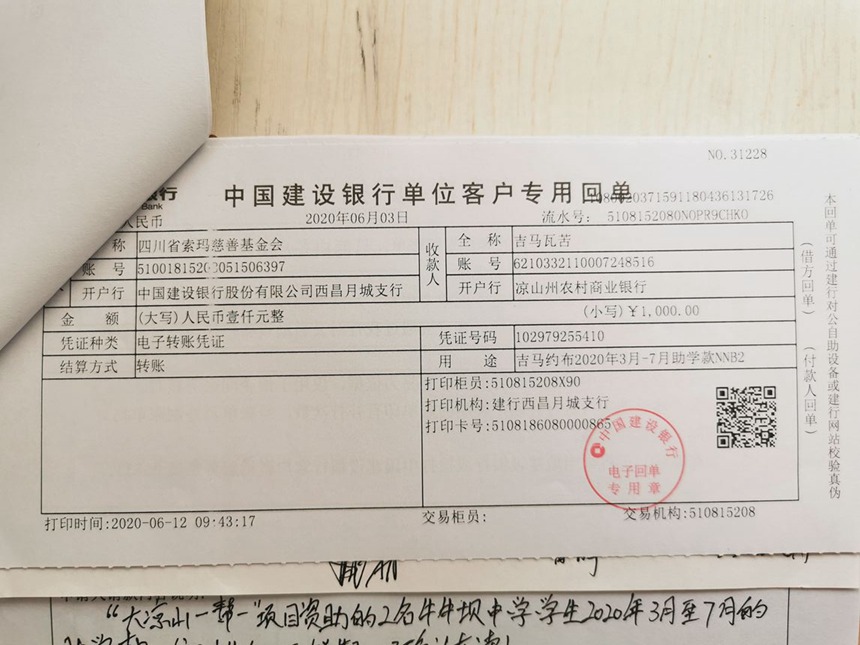 NO.31228
银行
Bank
中国建设银行单位客户专用回单
人民币
2020年06月03日
流水号: 5108152080N0PR9CHK0
称 四川省索玛慈善基金会
收款人
全 称 吉马瓦苦
账 号
账 号 6210332110007248516
开户行 中国建设银行股份有限公司西昌月城支行
开户行 凉山州农村商业银行
金 额 (大写)人民币壹仟元整
(小写)¥1,000.00
凭证种类 电子转账凭证
凭证号码 102979255410
结算方式 转账
用 途 吉马约布2020年3月-7月助学款NNB2
打印柜员:510815208X90
打印机构:建行西昌月城支行
打印卡号:5108186080000865
中国建设银行
电子回单
专用章
打印时间:2020-06-12 09:43:17
交易柜员:
交易机构:510815208
本回单可通过建行对公自助设备或建行网站校验真伪
(借方回单)
(付款人回单)
“大凉山一帮一”项目资助的2名牛牛坝中学学生2020年3月至7月的